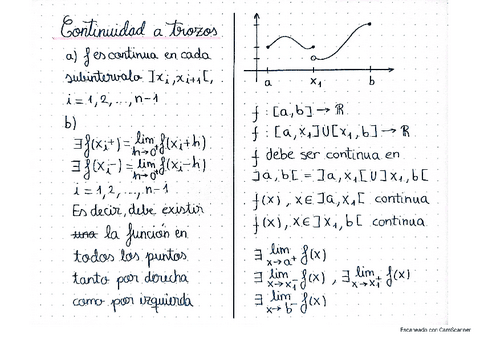 Continuidad a trozos
a) f es continua en cada
subintervalo ]xᵢ, xᵢ₊₁[,
i = 1, 2, ..., n-1
b)
∃ f(xᵢ+) = lim h→0⁺ f(xᵢ+h)
∃ f(xᵢ-) = lim h→0⁺ f(xᵢ-h)
i = 1, 2, ..., n-1
Es decir, debe existir
una la función en
todos los puntos
tanto por derecha
como por izquierda
a x₁ b
f : [a, b] → ℝ
f : [a, x₁] ∪ [x₁, b] → ℝ
f debe ser continua en
]a, b[ = ]a, x₁[ ∪ ]x₁, b[
f(x), x ∈ ]a, x₁[ continua
f(x), x ∈ ]x₁, b[ continua
∃ lim x→a⁺ f(x)
∃ lim x→x₁⁻ f(x), ∃ lim x→x₁⁺ f(x)
∃ lim x→b⁻ f(x)
Escaneado con CamScanner